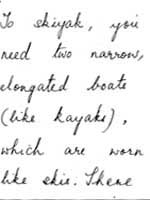 To skiyak, you
need two narrow,
elongated boats
(like kayaks),
which are worn
like skis. These